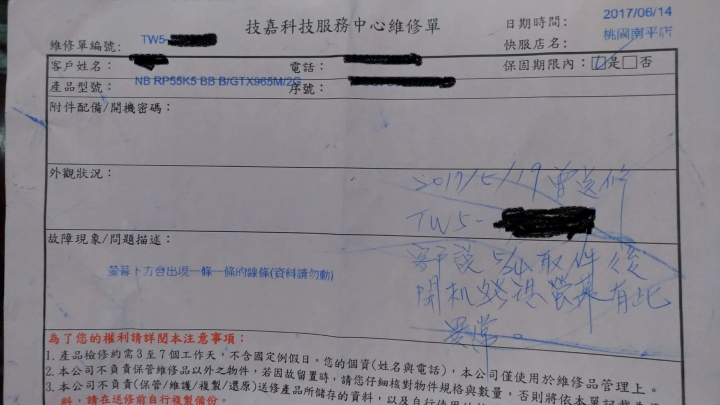 技嘉科技服務中心維修單
日期時間: 2017/06/14
維修單編號: TW5-
快服店名: 桃園南平店
客戶姓名:
電話:
保固期限內: ☑是□否
產品型號: NB RP55K5 BB B/GTX965M/2G
序號:
附件配備/開機密碼:
外觀狀況:
2017/5/19 曾送修
TW5-
故障現象/問題描述:
螢幕下方會出現一條一條的線條(資料請勿動)
客戶說 5/24取件後
開机 螢幕有此
異常。
為了您的權利請詳閱本注意事項:
1. 產品檢修約需3至7個工作天，不含國定例假日。您的個資(姓名與電話)，本公司僅使用於維修品管理上。
2. 本公司不負責保管維修品以外之物件，若因故留置時，請您仔細核對物件規格與數量，否則將依本單記載為
3. 本公司不負責(保管/維護/複製/還原)送修產品所儲存的資料，以及自行使用
料，請在送修前自行複製備份。